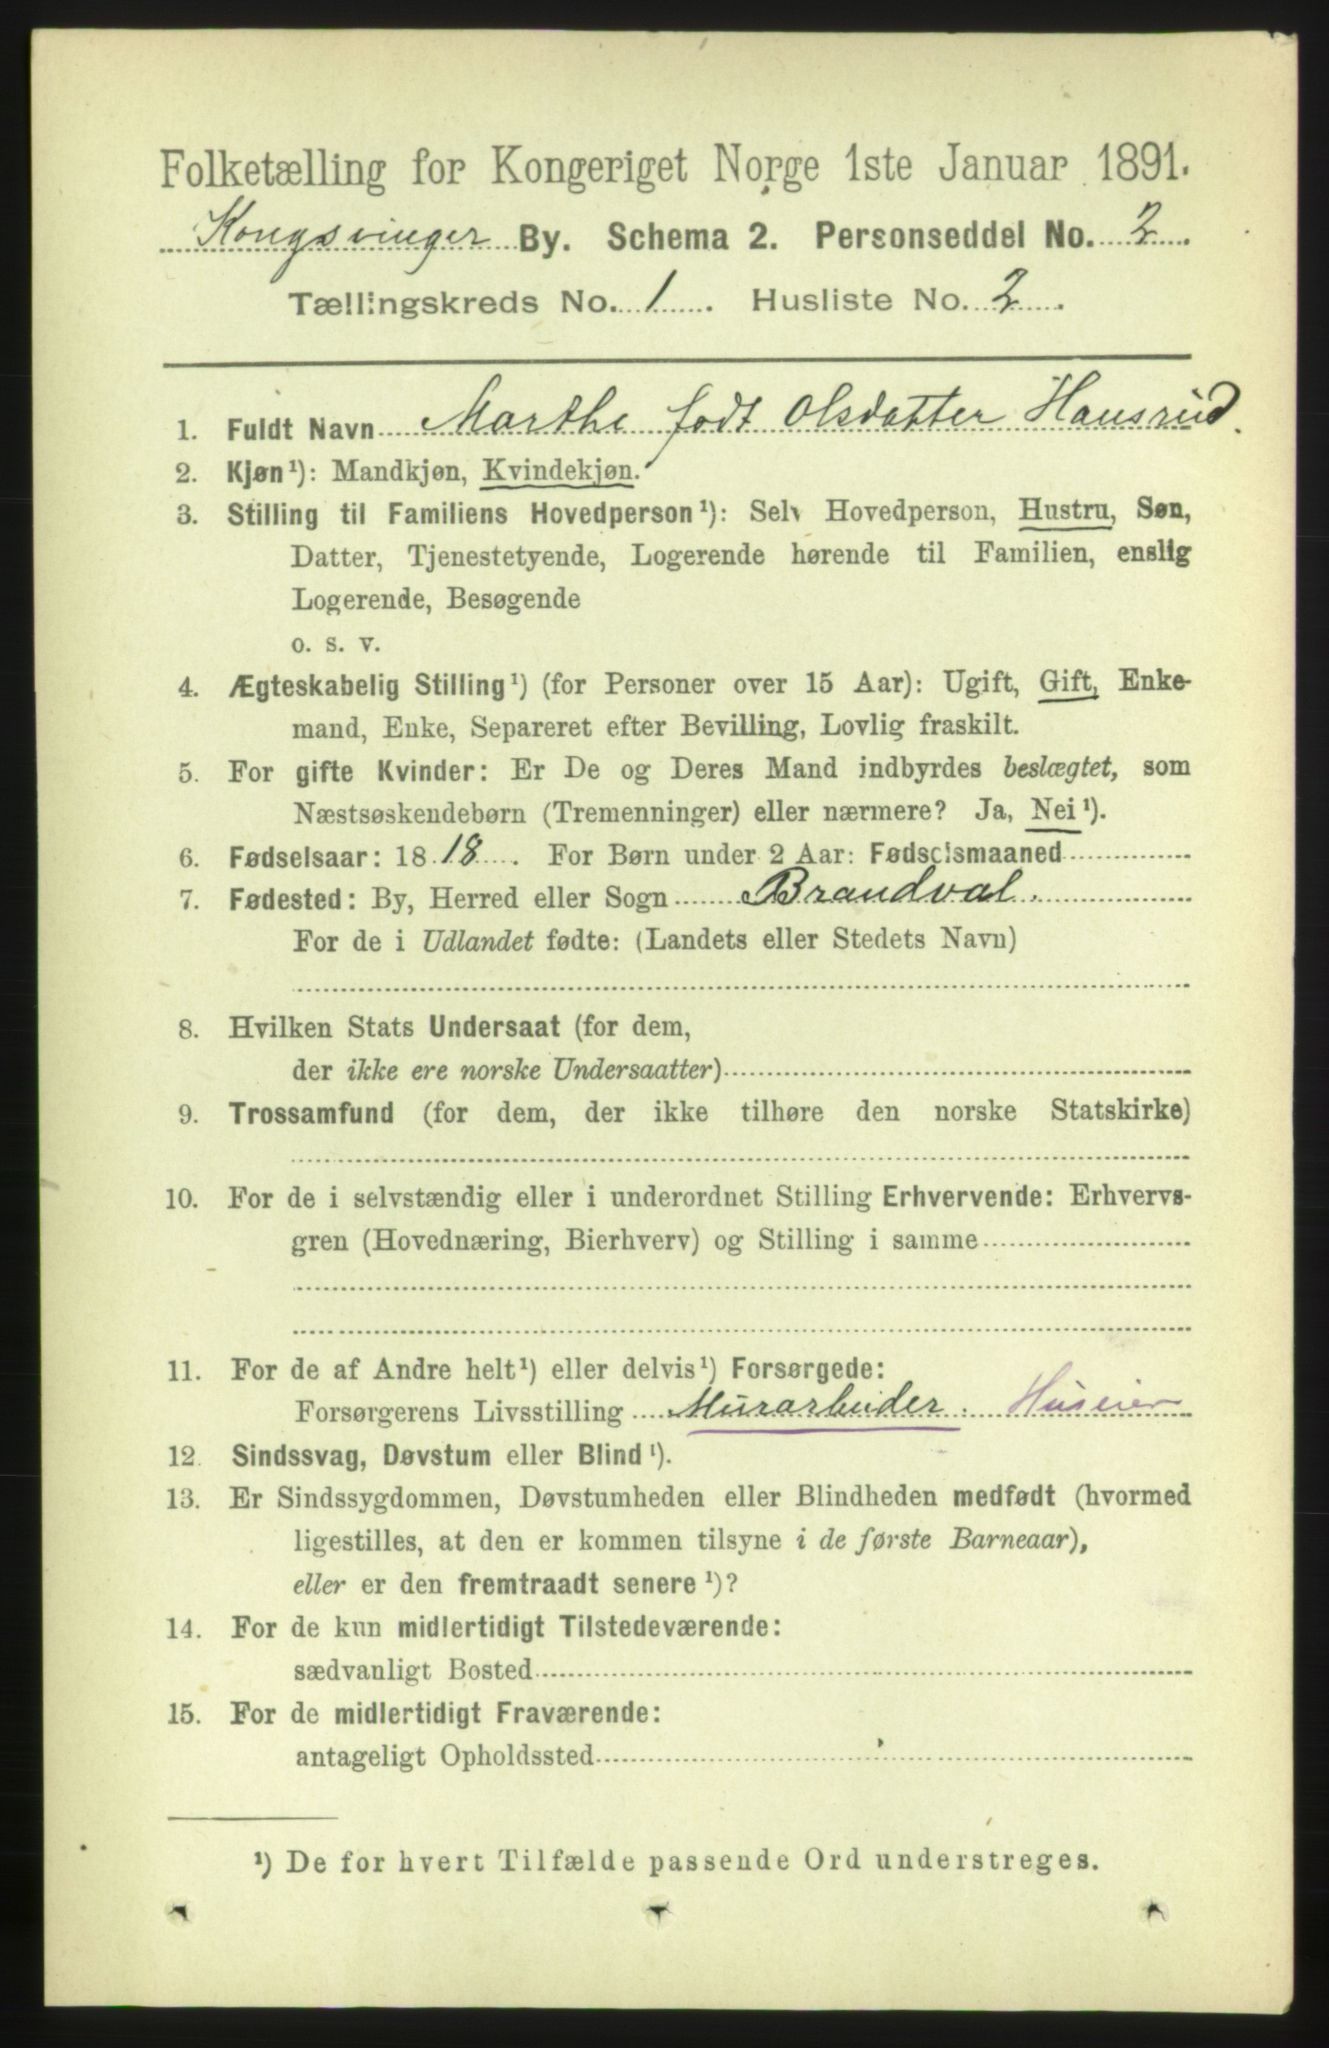 Folketælling for Kongeriget Norge 1ste Januar 1891.
Kongsvinger By. Schema 2. Personseddel No. 2
Tællingskreds No. 1. Husliste No. 2.
1. Fuldt Navn Marthe født Olsdatter Hansrud.
2. Kjøn¹): Mandkjøn, Kvindekjøn.
3. Stilling til Familiens Hovedperson¹): Selv Hovedperson, Hustru, Søn,
Datter, Tjenestetyende, Logerende hørende til Familien, enslig
Logerende, Besøgende
o. s. v.
4. Ægteskabelig Stilling¹) (for Personer over 15 Aar): Ugift, Gift, Enke-
mand, Enke, Separeret efter Bevilling, Lovlig fraskilt.
5. For gifte Kvinder: Er De og Deres Mand indbyrdes beslægtet, som
Næstsøskendebørn (Tremenninger) eller nærmere? Ja, Nei¹).
6. Fødselsaar: 1818. For Børn under 2 Aar: Fødselsmaaned
7. Fødested: By, Herred eller Sogn Brandval.
For de i Udlandet fødte: (Landets eller Stedets Navn)
8. Hvilken Stats Undersaat (for dem,
der ikke ere norske Undersaatter)
9. Trossamfund (for dem, der ikke tilhøre den norske Statskirke)
10. For de i selvstændig eller i underordnet Stilling Erhvervende: Erhvervs-
gren (Hovednæring, Bierhverv) og Stilling i samme
11. For de af Andre helt¹) eller delvis¹) Forsørgede:
Forsørgerens Livsstilling Murarbeider. Huseier
12. Sindssvag, Døvstum eller Blind¹).
13. Er Sindssygdommen, Døvstumheden eller Blindheden medfødt (hvormed
ligestilles, at den er kommen tilsyne i de første Barneaar),
eller er den fremtraadt senere¹)?
14. For de kun midlertidigt Tilstedeværende:
sædvanligt Bosted
15. For de midlertidigt Fraværende:
antageligt Opholdssted
¹) De for hvert Tilfælde passende Ord understreges.